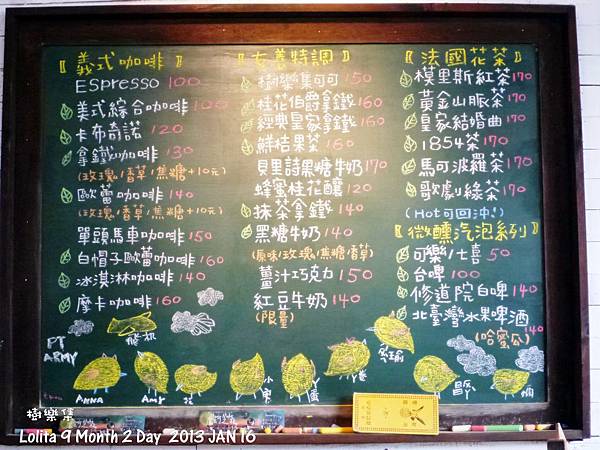 〖義式咖啡〗
ESPresso 100
美式綜合咖啡 120
卡布奇諾 120
拿鐵咖啡 130
(玫瑰/香草/焦糖+10元)
歐蕾咖啡 140
(玫瑰/香草/焦糖+10元)
單頭馬車咖啡 150
白帽子歐蕾咖啡 160
冰淇淋咖啡 140
摩卡咖啡 160
〖友善特調〗
樹樂集可可 150
桂花伯爵拿鐵 160
經典皇家拿鐵 160
鮮桔果茶 160
貝里詩果糖牛奶 170
蜂蜜桂花釀 120
抹茶拿鐵 140
黑糖牛奶 140
(原味/玫瑰/焦糖/香草)
薑汁巧克力 150
紅豆牛奶 140
(限量)
〖法國花茶〗
模里斯紅茶 170
黃金山脈茶 170
皇家結婚曲 170
1854茶 170
馬可波羅茶 170
歌劇綠茶 170
(Hot可回沖!)
〖微醺汽泡系列〗
可樂/七喜 50
台啤 100
修道院白啤 140
北臺灣水果啤酒 140
(哈蜜瓜)
FT ARMY
飛机
ANNA
Amy
樹樂集
Lolita 9 Month 2 Day 2013 JAN 16